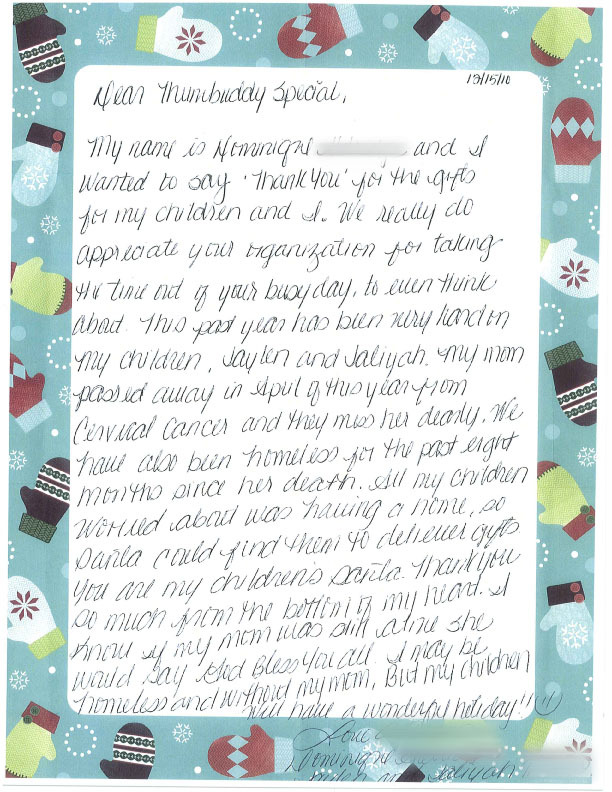 12/15/10
Dear Thumbuddy Special,
My name is Dominique and I
wanted to say 'Thank You' for the gifts
for my children and I. We really do
appreciate your organization for taking
the time out of your busy day, to even think
about. This past year has been very hard on
my children, Jaylen and Jaliyah. My mom
passed away in April of this year from
Cervical Cancer and they miss her dearly. We
have also been homeless for the past eight
months since her death. All my children
worried about was having a home, so
Santa could find them to deliever gifts
You are my children's Santa. Thank you
so much from the bottom of my heart. I
know if my mom was still alive she
would say God Bless You all. I may be
homeless and without my mom, But my children
will have a wonderful holiday!!
Love
Dominique
Jaylen and Jaliyah